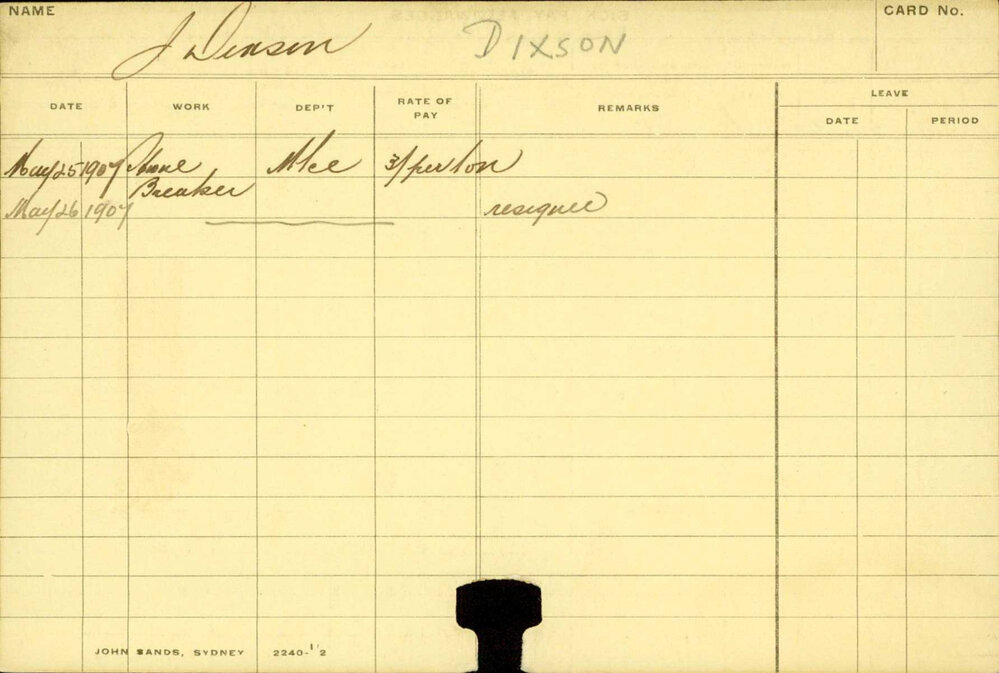 NAME
CARD No.
J Dixson DIXSON
DATE WORK DEP'T RATE OF PAY REMARKS LEAVE
DATE PERIOD
May 25 1907 Stone Breaker 3/ per ton
May 26 1907 resigned
JOHN SANDS, SYDNEY 2240-1'2